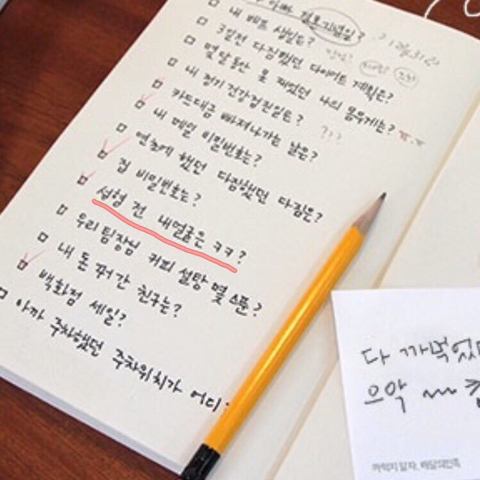 아빠 결혼기념일?
내 베프 생일은?
3일전 다짐했던 다이어트 계획은?
몇 달동안 못 재었던 나의 몸무게는? ㅠ.ㅠ
내 정기 건강검진일은?
카드대금 빠져나가는 날은?
내 메일 비밀번호는? ???
연초에 했던 다짐했던 다짐은?
집 비밀번호는?
성형 전 내얼굴은 ㅋㅋ?
우리팀장님 커피 설탕 몇 스푼?
내 돈 꿔 간 친구는?
백화점 세일?
아까 주차했던 주차위치가 어디?
다 까먹었
으악
까먹지 말자. 배달의민족